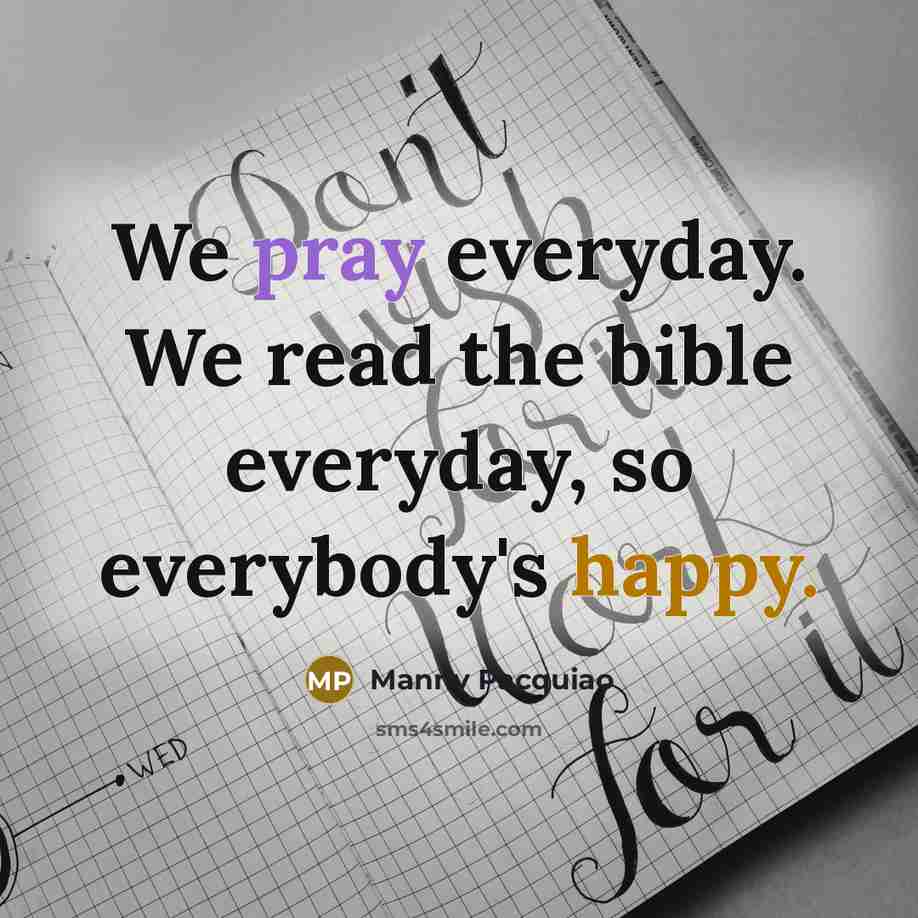 We pray everyday.
We read the bible
everyday, so
everybody's happy.
MP Manny Pacquiao
sms4smile.com
Don't
wish
for it
Work
for it
WED